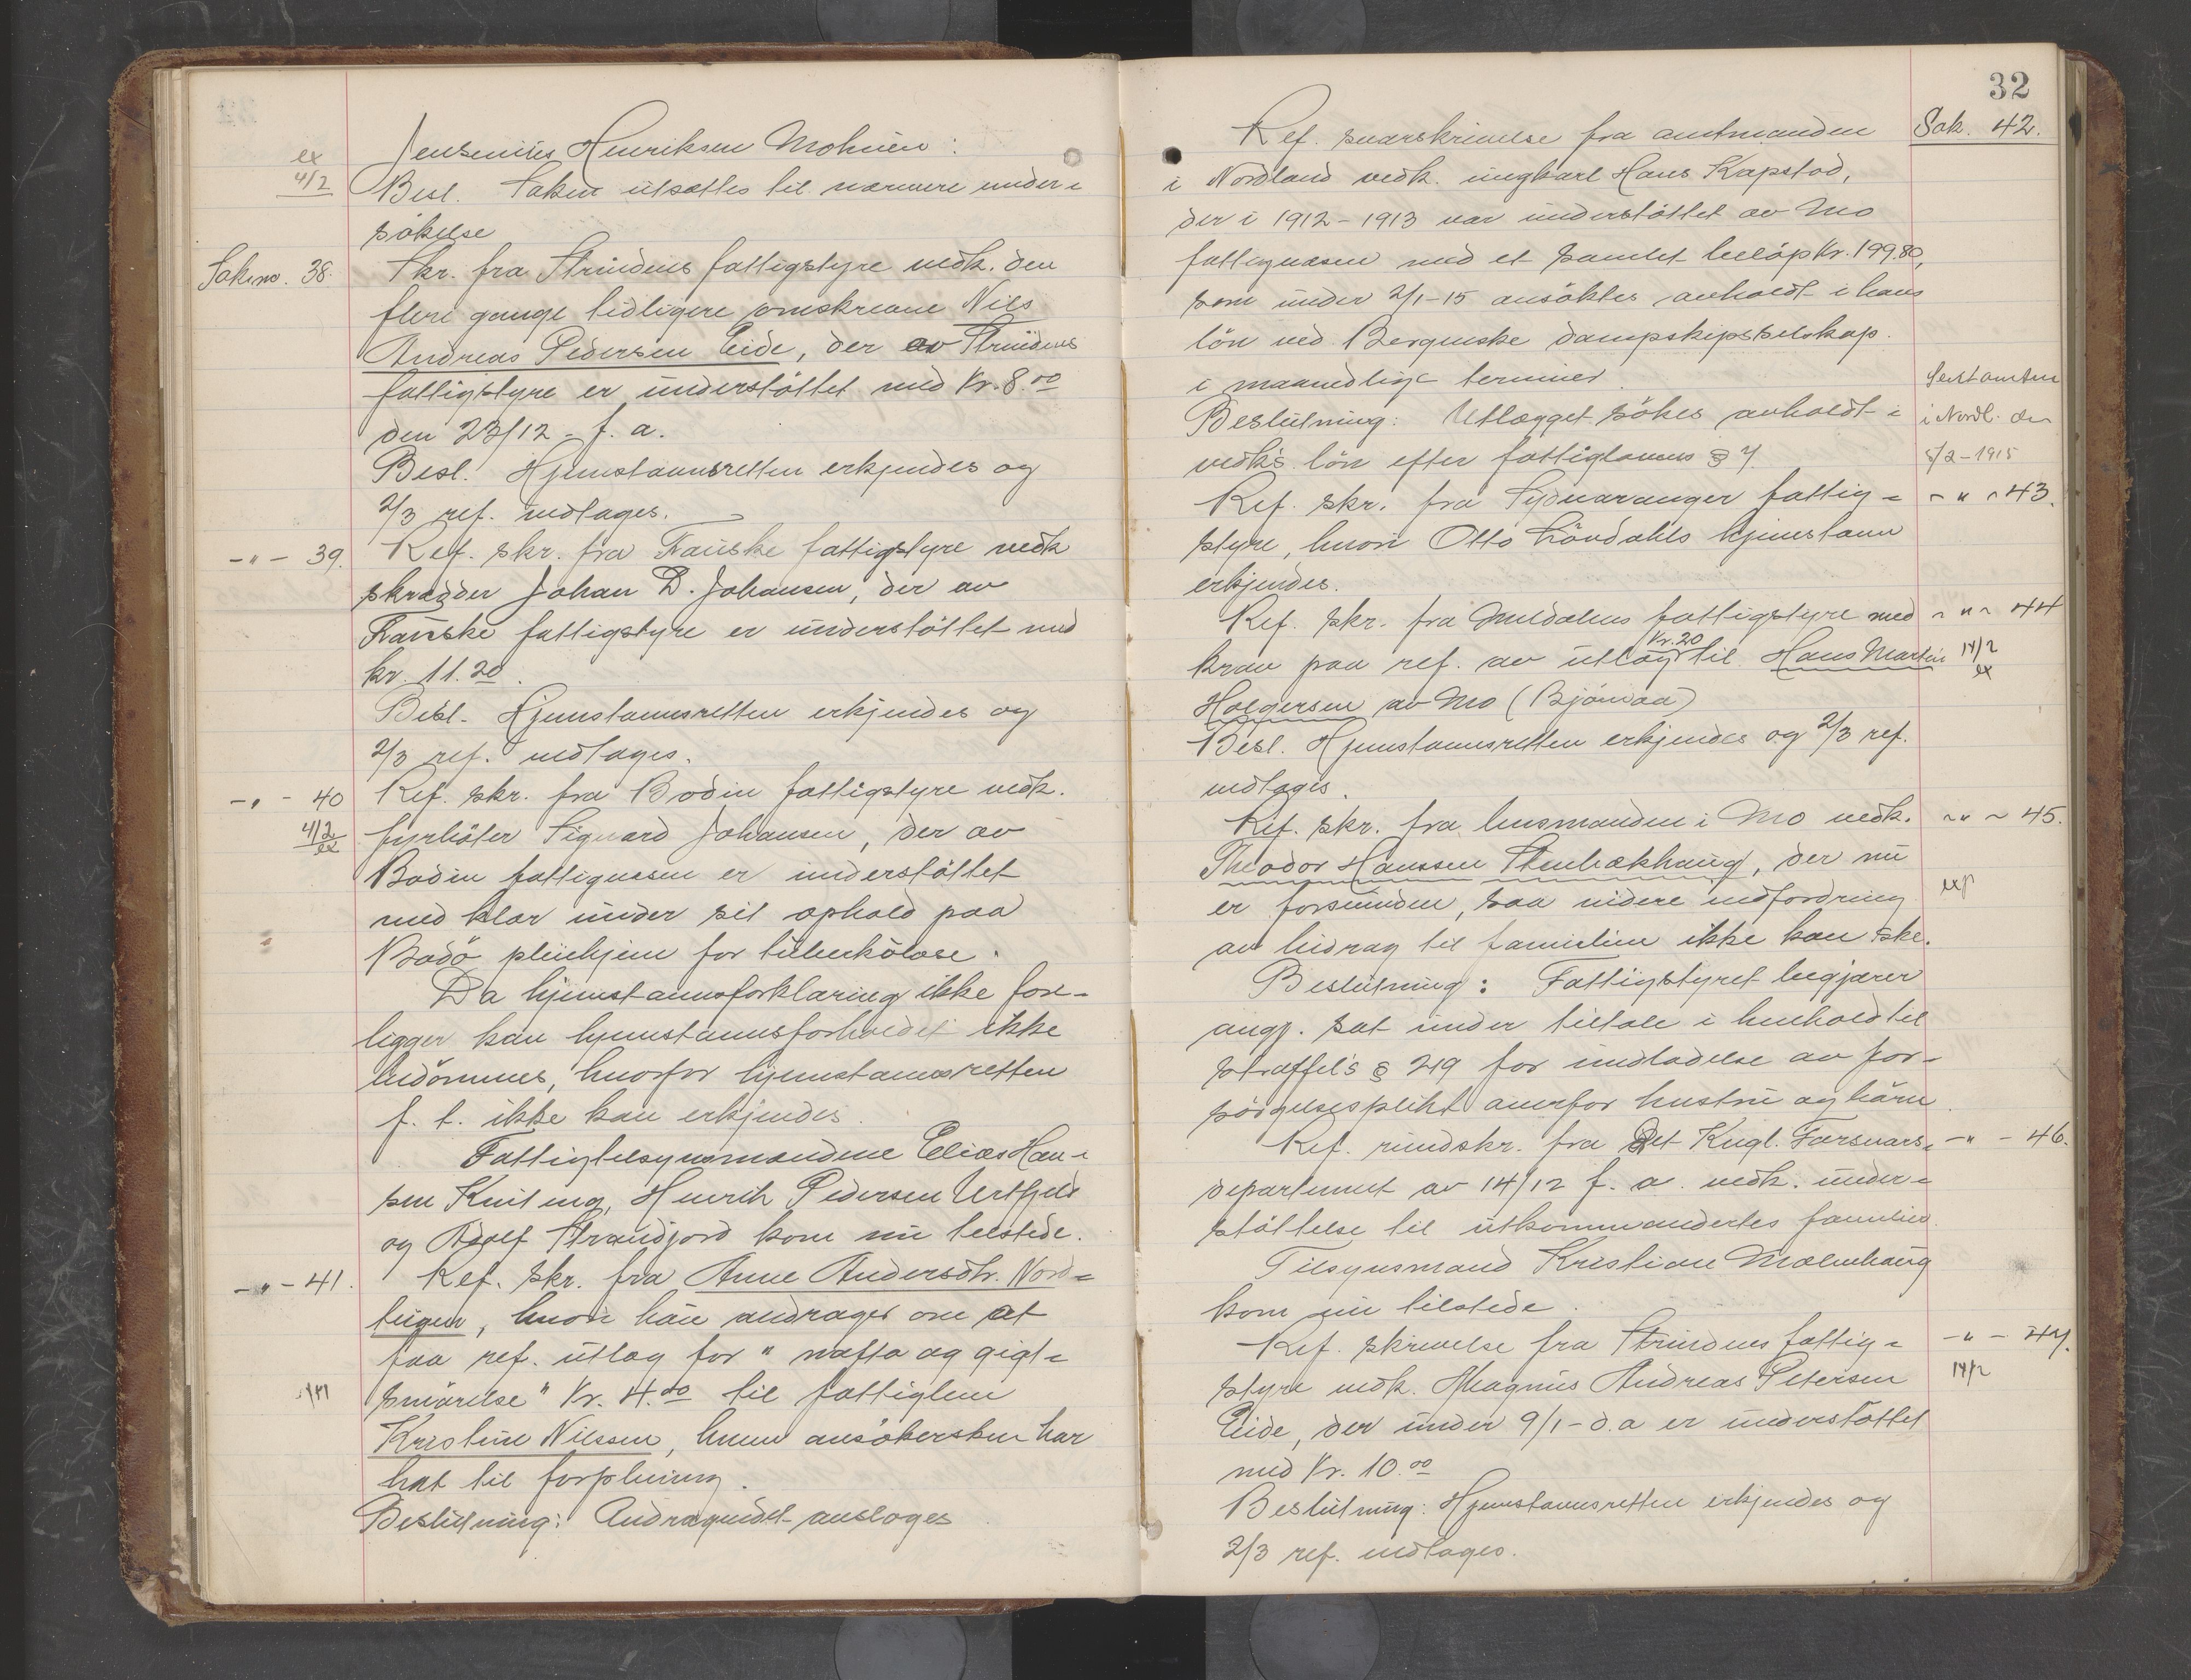 Jensenius Henriksen Mohnen:
ex
4/2
Besl. Saken utsættes til nærmere under-
søkelse
Sak no. 38. Skr. fra Strindens fattigstyre vedk. den
flere gange tidligere omskrevne Nils
Andreas Pedersen Eide, der av Strindens
fattigstyre er understøttet med Kr. 8.00
den 23/12 - f. a.
Besl. Hjemstavnsretten erkjendes og
2/3 ref. vedtages.
-"- 39. Ref. skr. fra Fauske fattigstyre vedk
skrædder Johan D. Johansen, der av
Fauske fattigstyre er understøttet med
kr. 11.20.
Besl. Hjemstavnsretten erkjendes og
2/3 ref. vedtages.
-"- 40 Ref. skr. fra Bodin fattigstyre vedk.
4/2
ex
fyrbøter Sigvard Johansen, der av
Bodin fattigvæsen er understøttet
med klær under sit ophold paa
Bodø pleiehjem for tuberkoløse.
Da hjemstavnsforklaring ikke fore-
ligger kan hjemstavnsforholdet ikke
bedømmes, hvorfor hjemstavnsretten
f. t. ikke kan erkjendes.
Fattigtilsynsmændene Elias Han-
sen , Henrik Pedersen Urtfjeld
og Adolf Strandjord kom nu tilstede.
-"- 41. Ref. skr. fra Anne Andersdtr. Nord-
, hvori hun andrager om at
faa ref. utlæg for "nafta og gigt-
smørelse" Kr. 4.00 til fattiglem
Kristine Nilssen, hvem ansøkersken har
hat til forpleining.
Beslutning: Andragendet avslaaes
32
Ref. svarskrivelse fra amtmanden Sak. 42.
i Nordland vedk. ungkarl Hans Kapstad,
der i 1912-1913 var understøttet av Mo
fattigvæsen med et samlet beløp Kr. 199.80,
som under 2/1-15 ansøktes avholdt i hans
løn ved Bergenske dampskipsselskap.
i maanedlige terminer.
Sendt amtm
i Nordl. den
5/2-1915
Beslutning: Utlægget søkes avholdt i
vedk's løn efter fattiglovens § 7.
Ref. skr. fra Sydvaranger fattig- -"- 43.
styre, hvori Otto Løvdahls hjemstavn
erkjendes.
Ref. skr. fra Meldalens fattigstyre med -"- 44
krav paa ref. av utlæg Kr. 20 til Hans Martin 14/2
ex
Holgersen av Mo (Bjørnaa)
Besl. Hjemstavnsretten erkjendes og 2/3 ref.
vedtages.
Ref. skr. fra lensmanden i Mo vedk. -"- 45.
Theodor Hanssen Stenbækhaug, der nu
exp
er forsvunden, saa videre indfordring
av bidrag til familien ikke kan ske.
Beslutning: Fattigstyret begjærer
angj. sat under tiltale i henhold til
straffel's § 219 for undladelse av for-
sørgelsesplikt overfor hustru og børn.
Ref. rundskr. fra Det Kngl. Forsvars- -"- 46.
departement av 14/12 f. a. vedk. under-
støttelse til utkommandertes familier.
Tilsynsmand Kristian Molnhaug
kom nu tilstede.
Ref. skrivelse fra Strindens fattig- -"- 47.
14/2
styre vedk. Magnus Andreas Petersen
Eide, der under 9/1 - d.a er understøttet
med Kr. 10.00
Beslutning: Hjemstavnsretten erkjendes og
2/3 ref. vedtages.